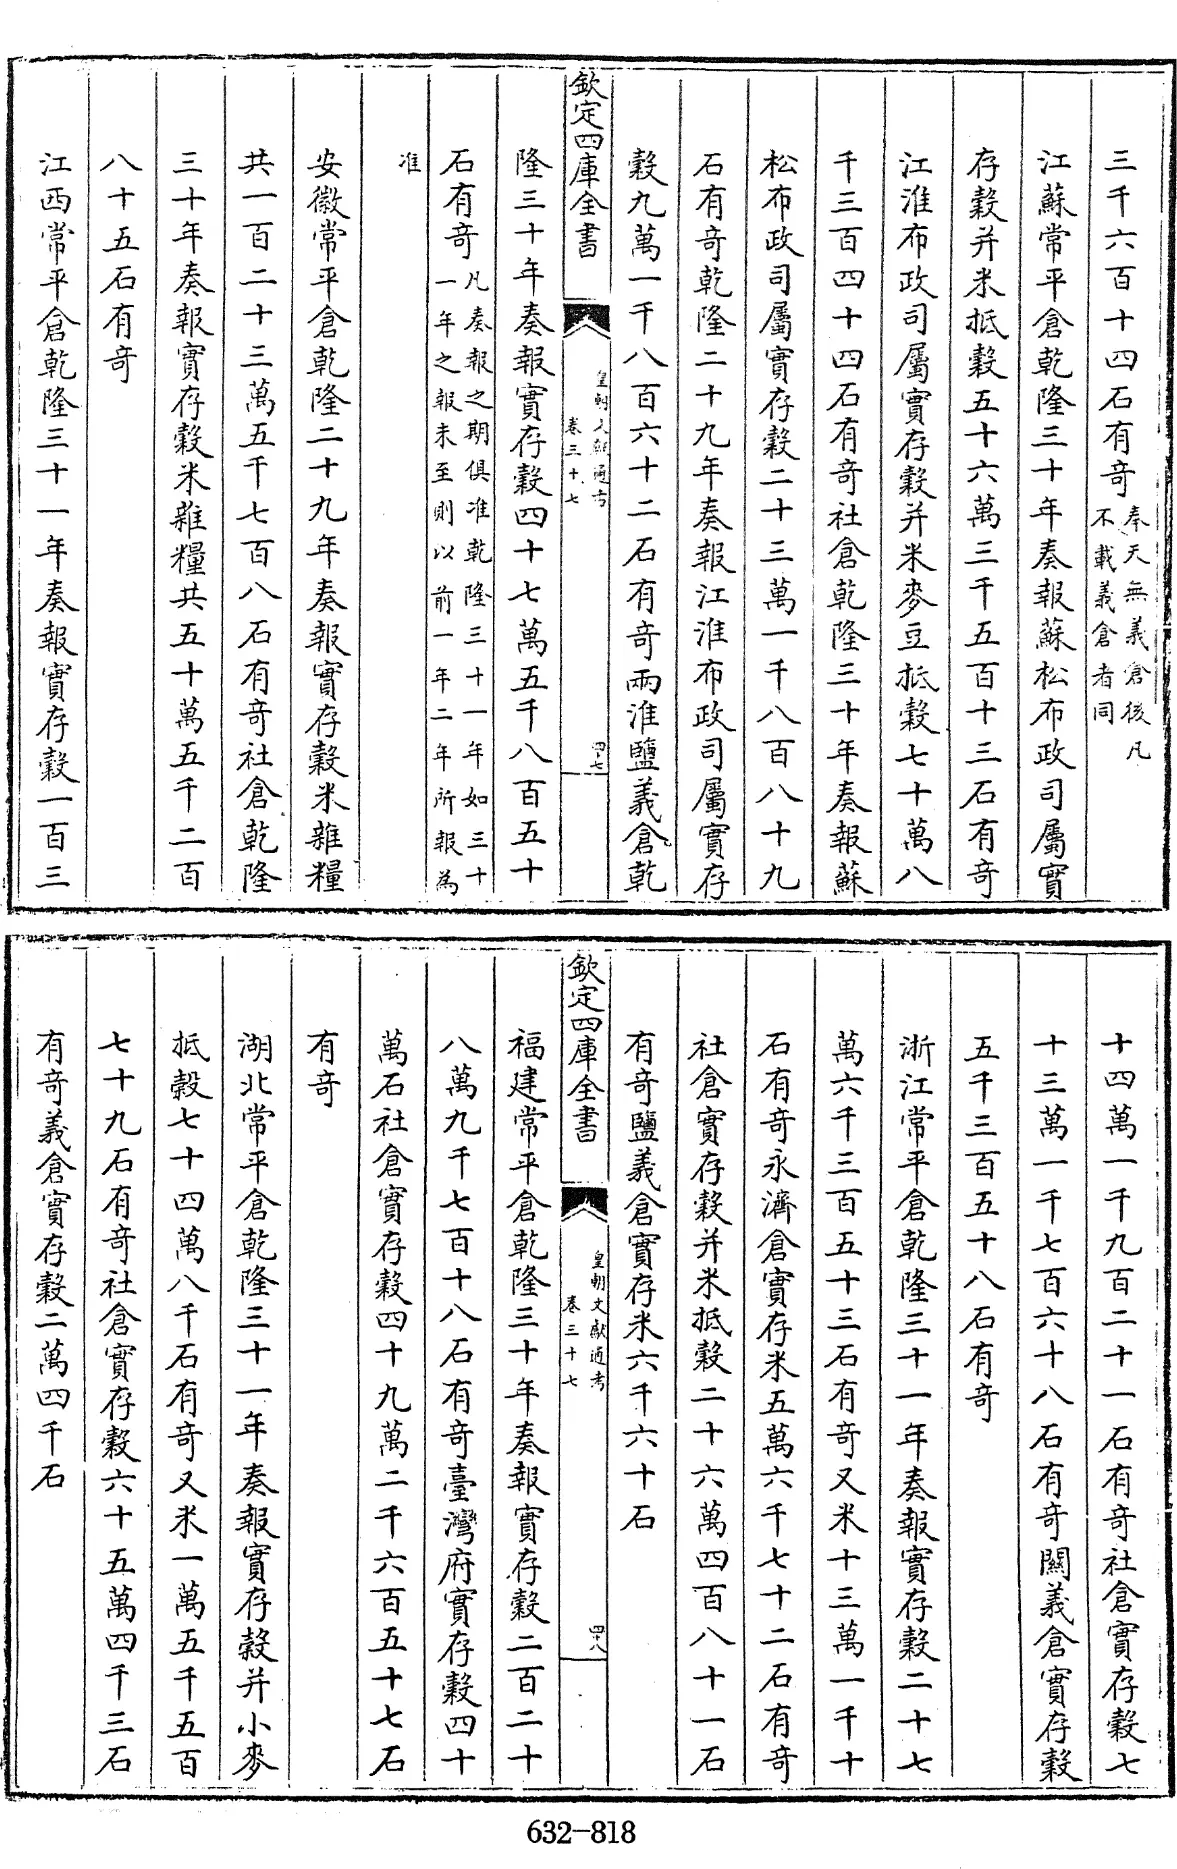 三千六百十四石有奇奉天無義倉後凡不載義倉者同
江蘇常平倉乾隆三十年奏報蘇松布政司屬實
存穀并米抵穀五十六萬三千五百十三石有奇
江淮布政司屬實存穀并米麥豆抵穀七十萬八
千三百四十四石有奇社倉乾隆三十年奏報蘇
松布政司屬實存穀二十三萬一千八百八十九
石有奇乾隆二十九年奏報江淮布政司屬實存
穀九萬一千八百六十二石有奇兩淮鹽義倉乾
欽定四庫全書
皇朝文獻通考
卷三十七
四十七
隆三十年奏報實存穀四十七萬五千八百五十
石有奇凡奏報之期俱准乾隆三十一年如三十一年之報未至則以前一年二年所報為
准
安徽常平倉乾隆二十九年奏報實存穀米雜糧
共一百二十三萬五千七百八石有奇社倉乾隆
三十年奏報實存穀米雜糧共五十萬五千二百
八十五石有奇
江西常平倉乾隆三十一年奏報實存穀一百三
十四萬一千九百二十一石有奇社倉實存穀七
十三萬一千七百六十八石有奇關義倉實存穀
五千三百五十八石有奇
浙江常平倉乾隆三十一年奏報實存穀二十七
萬六千三百五十三石有奇又米十三萬一千十
石有奇永濟倉實存米五萬六千七十二石有奇
社倉實存穀并米抵穀二十六萬四百八十一石
有奇鹽義倉實存米六千六十石
欽定四庫全書
皇朝文獻通考
卷三十七
四十八
福建常平倉乾隆三十年奏報實存穀二百二十
八萬九千七百十八石有奇臺灣府實存穀四十
萬石社倉實存穀四十九萬二千六百五十七石
有奇
湖北常平倉乾隆三十一年奏報實存穀并小麥
抵穀七十四萬八千石有奇又米一萬五千五百
七十九石有奇社倉實存穀六十五萬四千三石
有奇義倉實存穀二萬四千石
632-818